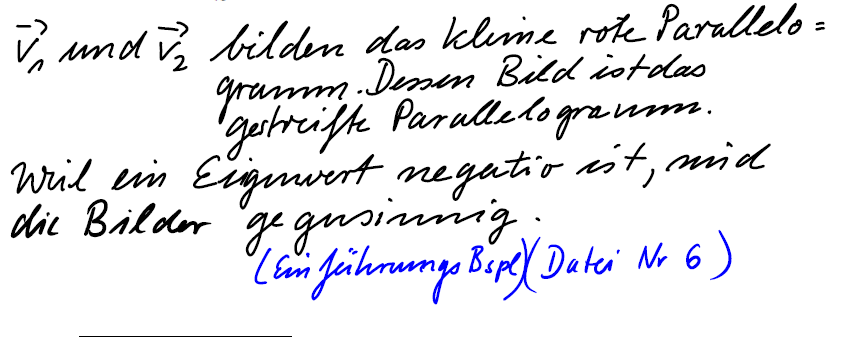 v₁ und v₂ bilden das kleine rote Parallelo=
gramm. Dessen Bild ist das
gestreifte Parallelogramm.
Weil ein Eigenwert negativ ist, sind
die Bilder gegensinnig.
(Einführungs Bspl)(Datei Nr 6)